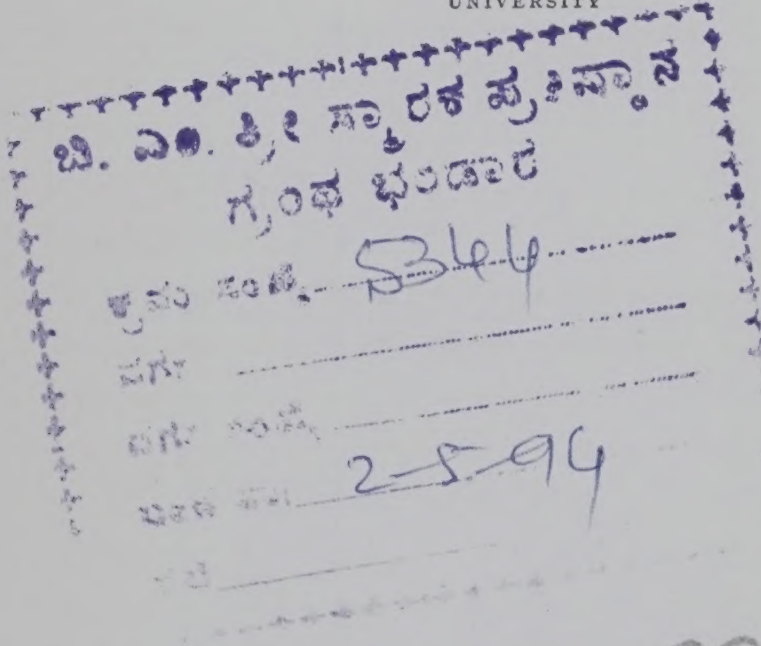 UNIVERSITY
ಬಿ. ಎಂ. ಶ್ರೀ ಸ್ಮಾರಕ ಪ್ರತಿಷ್ಠಾನ
ಗ್ರಂಥ ಭಂಡಾರ
ಕ್ರಮ ಸಂಖ್ಯೆ 5344
ವರ್ಗ
ವರ್ಗ ಸಂಖ್ಯೆ
2-5-94